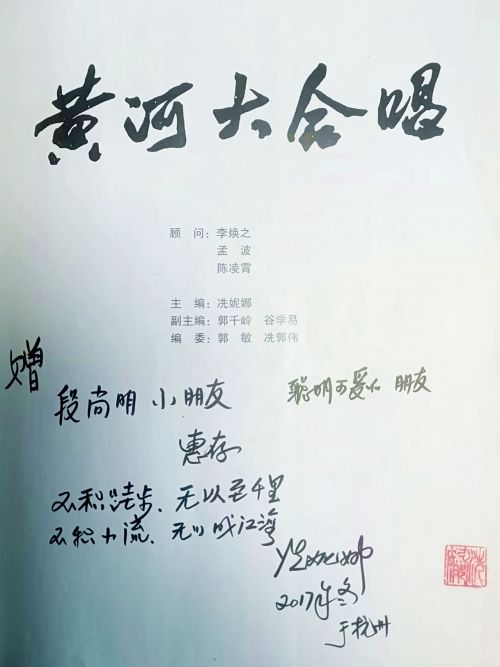 黄河大合唱
顾 问：李焕之
孟 波
陈凌霄
主 编：冼妮娜
副主编：郭千岭 谷学易
编 委：郭 敏 冼郭伟
赠
段尚明 小朋友 聪明可爱的 朋友
惠存
不积跬步、无以至千里
不积小流、无以成江海
冼妮娜
2017年冬
于杭州